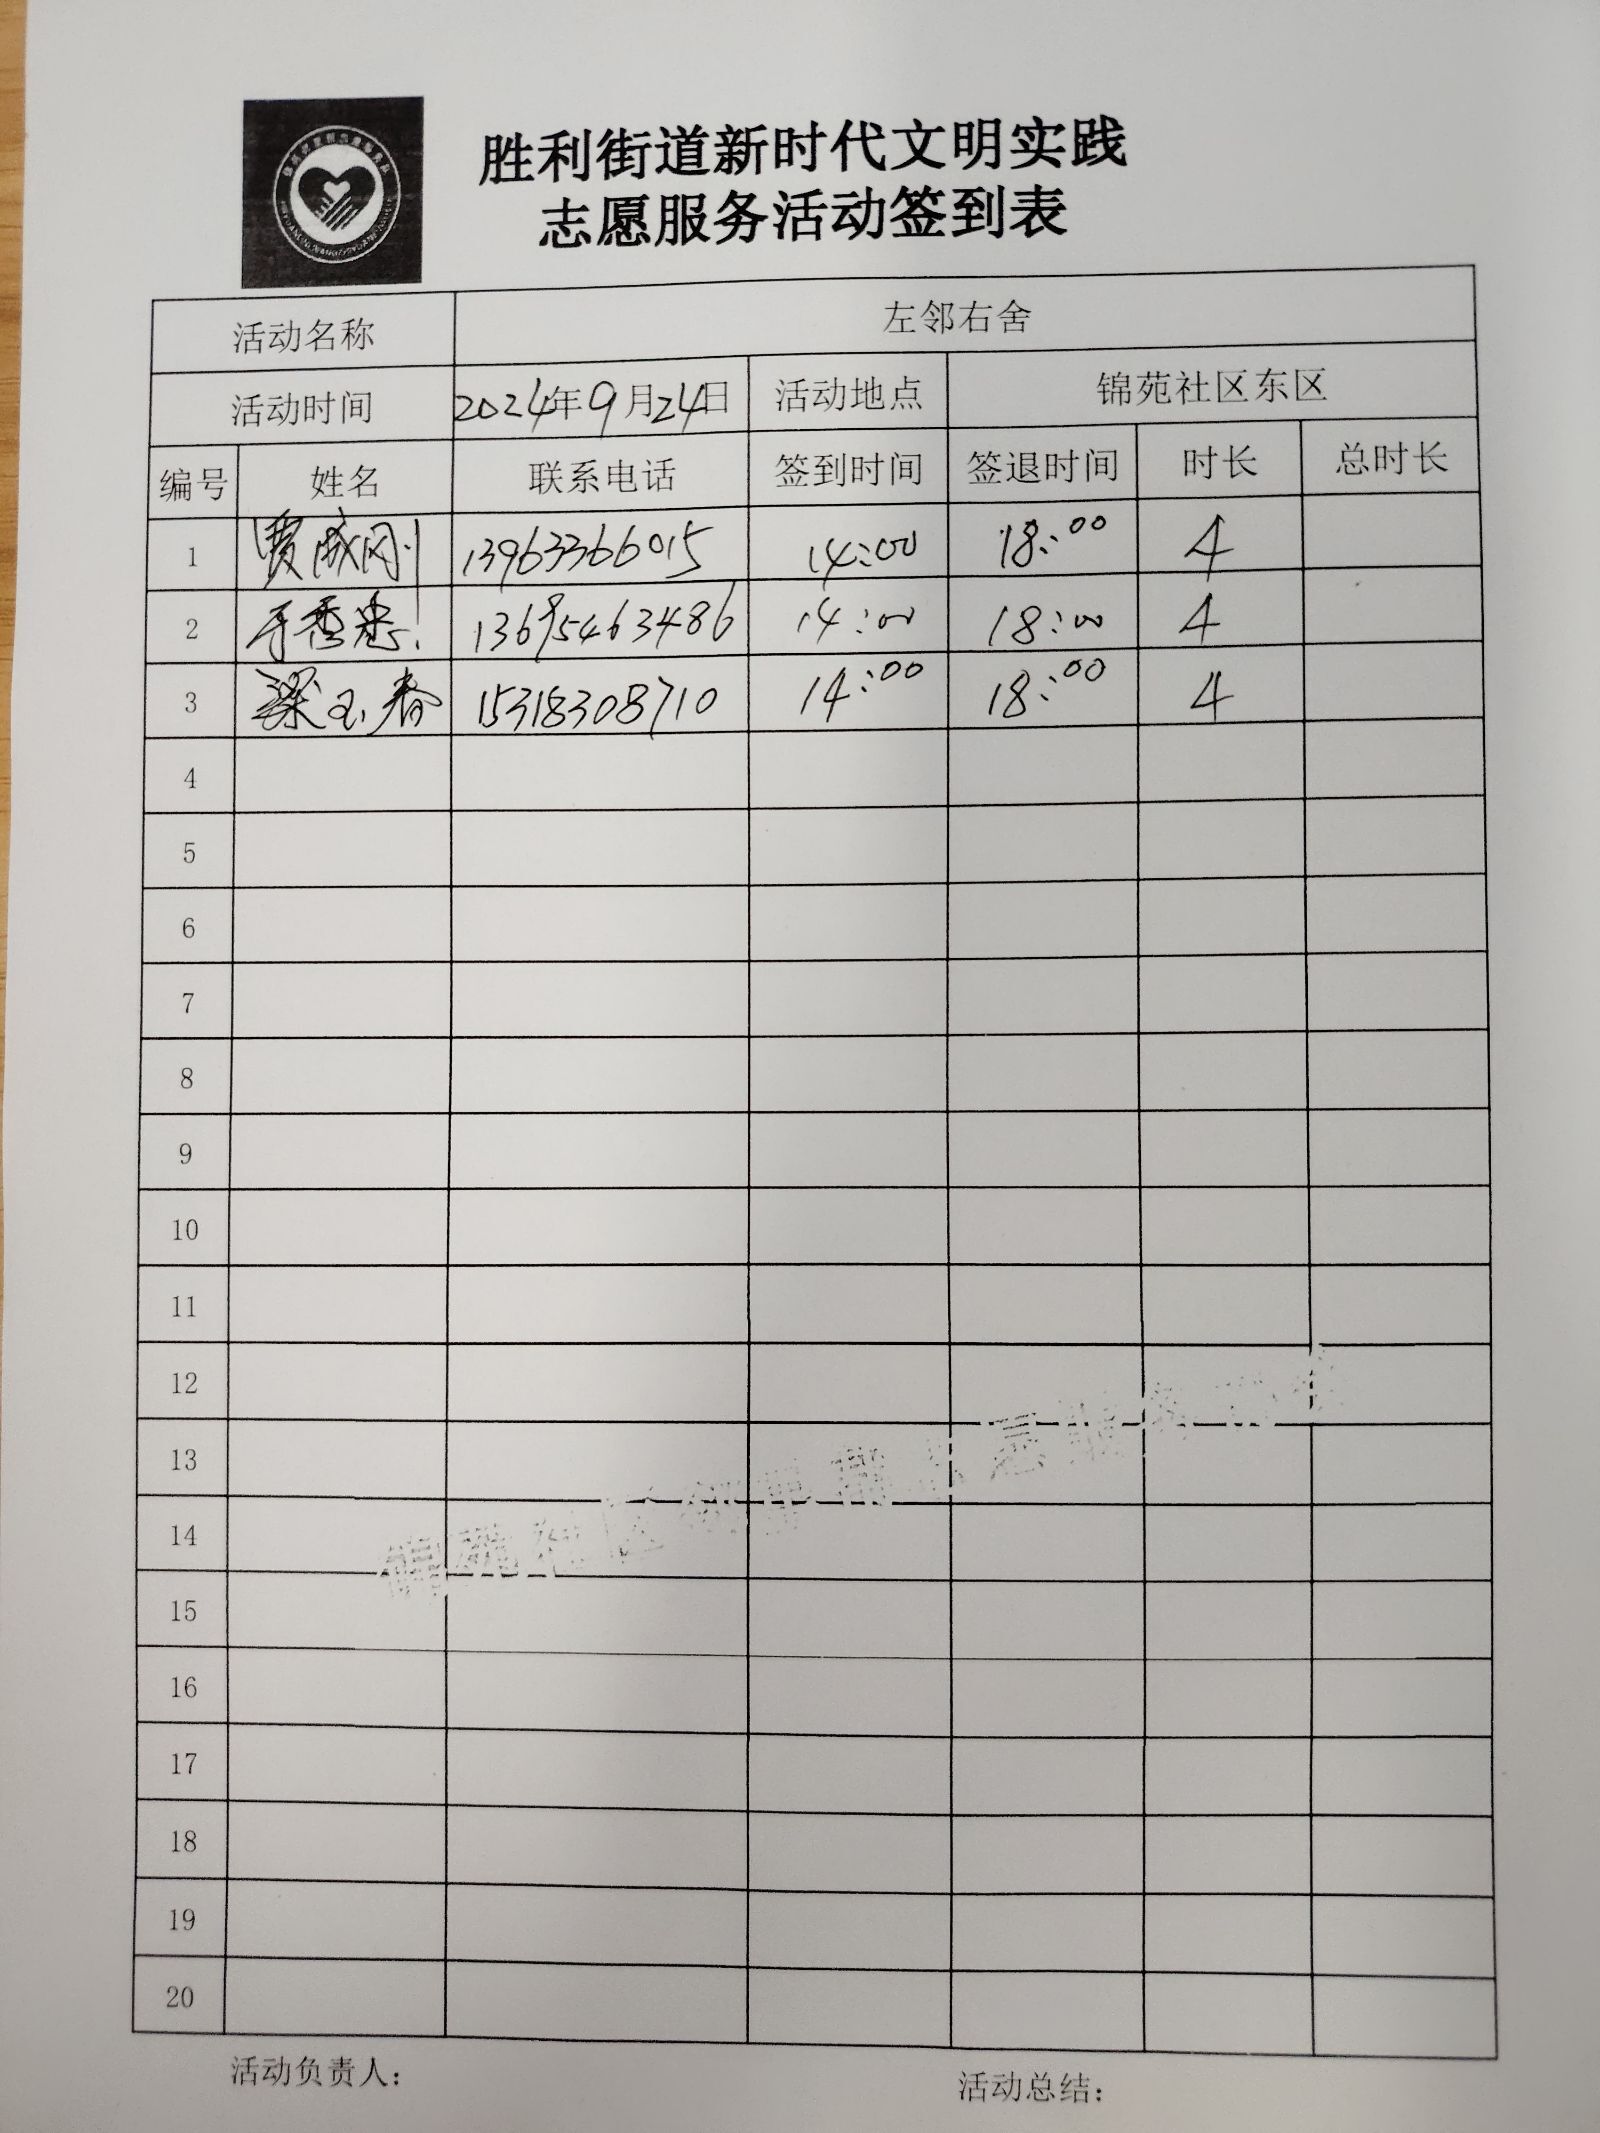 胜利街道新时代文明实践
志愿服务活动签到表
活动名称 左邻右舍
活动时间 2024年9月24日 活动地点 锦苑社区东区
编号 姓名 联系电话 签到时间 签退时间 时长 总时长
1 贾成刚 13963366015 14:00 18:00 4
2 于香忠 13695463486 14:00 18:00 4
3 梁玉春 15318308710 14:00 18:00 4
4
5
6
7
8
9
10
11
12
13
14
15
16
17
18
19
20
锦苑社区
活动负责人：
活动总结：